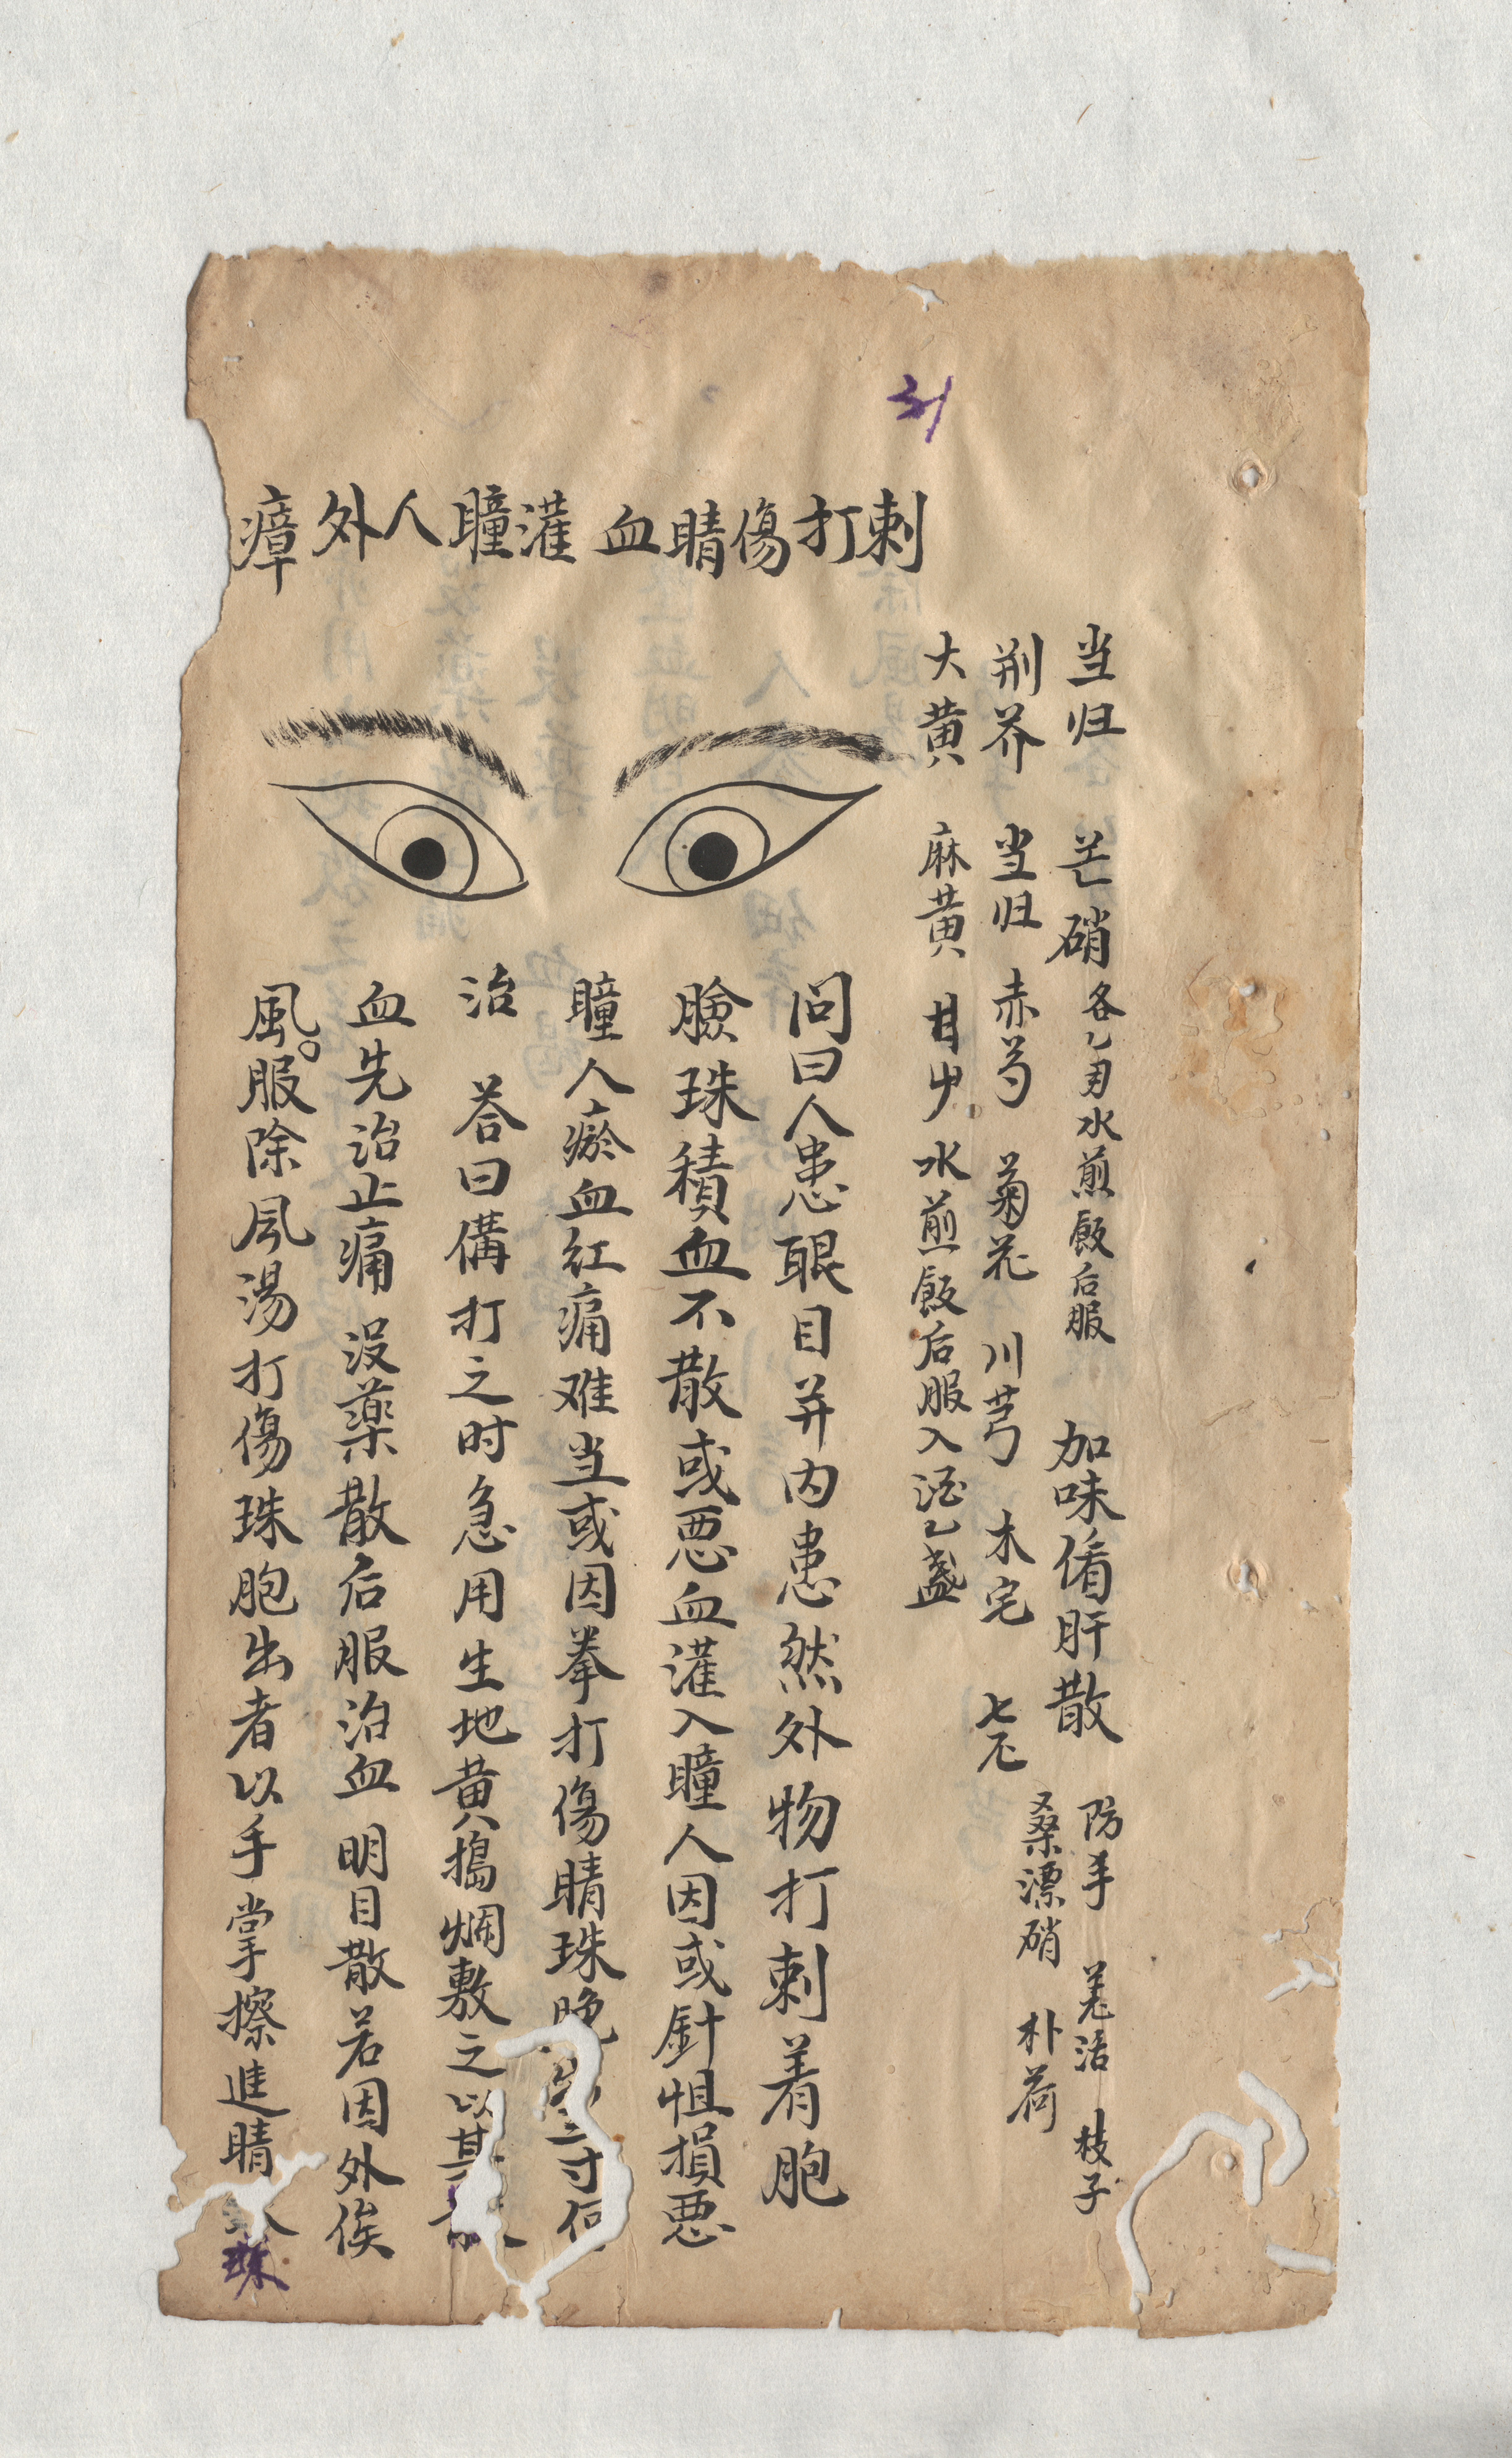 31
当归 芒硝 各乙月水煎飯后服 加味脩肝散 防手 羌活 枝子
桑漂硝 朴荷
荆芥 当归 赤芍 菊花 川芎 木宅 七不
大黄 麻黄 甘屮 水煎飯后服入酒乙盏
刺打傷睛血灌瞳人外瘴
问曰人患眼目并内患然外物打刺着胞
臉珠積血不散或悪血灌入瞳人因或針怚損悪
瞳人瘀血红痛难当或因拳打傷睛珠晚 二寸何
治 荅曰傋打之时急用生地黄搗烟敷之以其
血先治止痛 没藥散后服治血 明目散若因外俟
風。服除风湯打傷珠胞出者以手掌擦進睛
珠